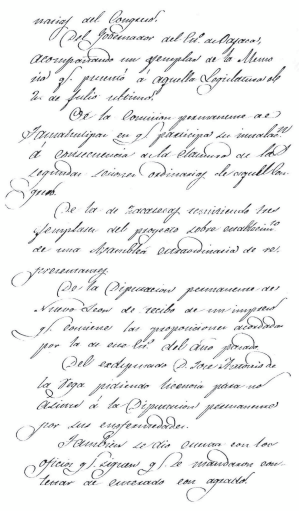 narios del Congreso.
Del Gobernador del Est.° de Oaxaca,
acompañando un ejemplar de la Memo
ria q.e presentó á aquella Legislatura el
2 de Julio ultimo.
De la Comision permanente de
Tamaulipas en q.e participa su instalac.n
á consecuencia de la clausura de las
segundas sesiones ordinarias de aquel Con
greso.
De la de Zacatecas, remitiendo tres
ejemplares del proyecto sobre
de una Asamblea extraordinaria de re
presentantes.
De la Diputacion permanente de
Nuevo Leon de recibo de un impreso
q.e contiene las proposiciones acordadas
por la de ese Est.° del año pasado.
Del exdiputado D. Jose Antonio de
la Vega pidiendo licencia para no
asistir á la Diputacion permanente
por sus enfermedades.
Tambien se dio cuenta con los
oficios q.e siguen q.e se mandaron con
testar de enterado con agrado.